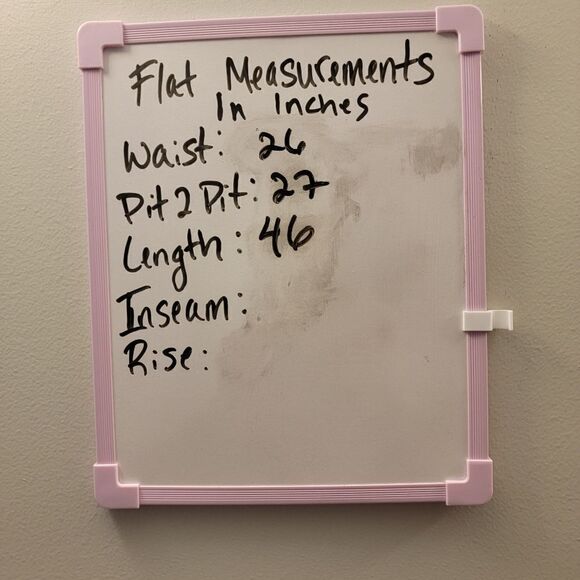 Flat Measurements
In Inches
Waist: 26
Pit 2 Pit: 27
Length: 46
Inseam:
Rise: